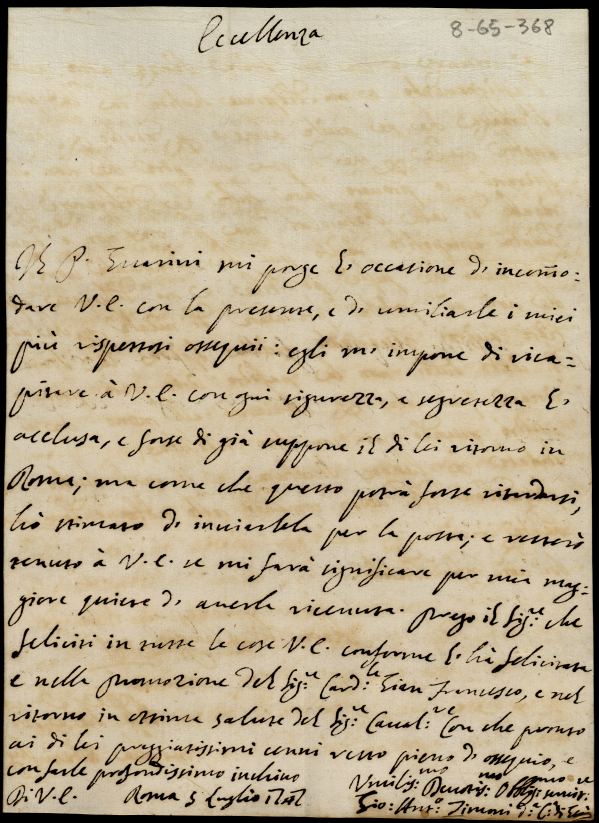 8-65-368
Eccellenza
Il P. Guarini mi porge l' occasione d' incom̃o=
dare V.E. con la presente, e d' umiliarle i miei
più rispettosi ossequii: egli m' impone di rica=
pitare à V.E. con ogni sigurezza, e segretezza l'
acclusa, e forse di già suppone il di lei ritorno in
Roma; ma come che questo potrà forse ritardarsi,
hò stimato d' inviarlela per la posta; e resterò
tenuto à V.E. se mi farà significare per mia mag=
giore quiete d' averla ricevuta. Prego il Sig.re che
feliciti in tutte le cose V.E. conforme l' hà felicitata
e nella promozione del Sig.re Card.le Gian Francesco, e nel
ritorno in ottima salute del Sig.re Caval.re Con che pronto
ai di lei preggiatissimi cenni resto pieno d' ossequio, e
con farle profondissimo inchino
Di V.E. Roma 5 Luglio
Umilis.mo Devotis.mo Obblig.mo servit.re
Gio: Ant.o Timoni